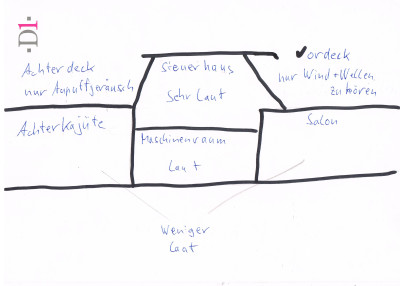 ·D1·
Achterdeck
nur Auspuffgeräusch
Steuerhaus
Sehr Laut
Vordeck
nur Wind+Wellen
zu hören
Achterkajüte
Maschinenraum
Laut
Salon
Weniger
Laut